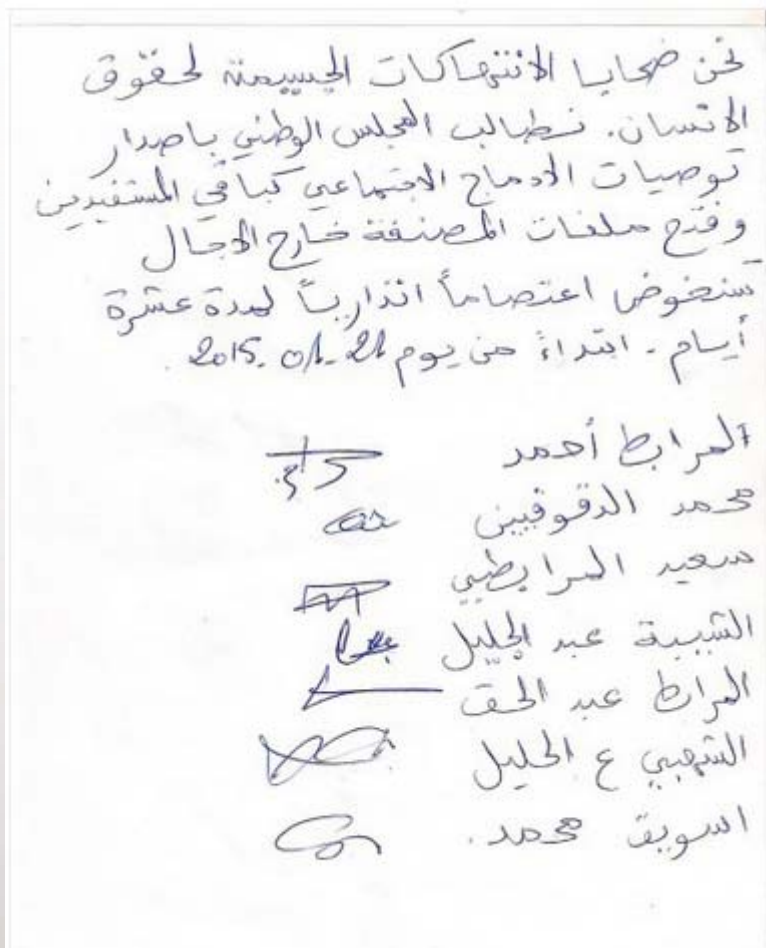 نحن ضحايا الانتهاكات الجسيمة لحقوق
الانسان. نطالب المجلس الوطني باصدار
توصيات الادماج الاجتماعي كباقي المستفيدين
وفتح ملفات المصنفة خارج الاجال
سنخوض اعتصاماً انذارياً لمدة عشرة
أيام - ابتداءً من يوم 21-01-2015.
المرابط أحمد
محمد الدقوقيين
سعيد المرابطي
الشبيبة عبد الجليل
المرابط عبد الحق
الشهبي ع الجليل
اسويق محمد.